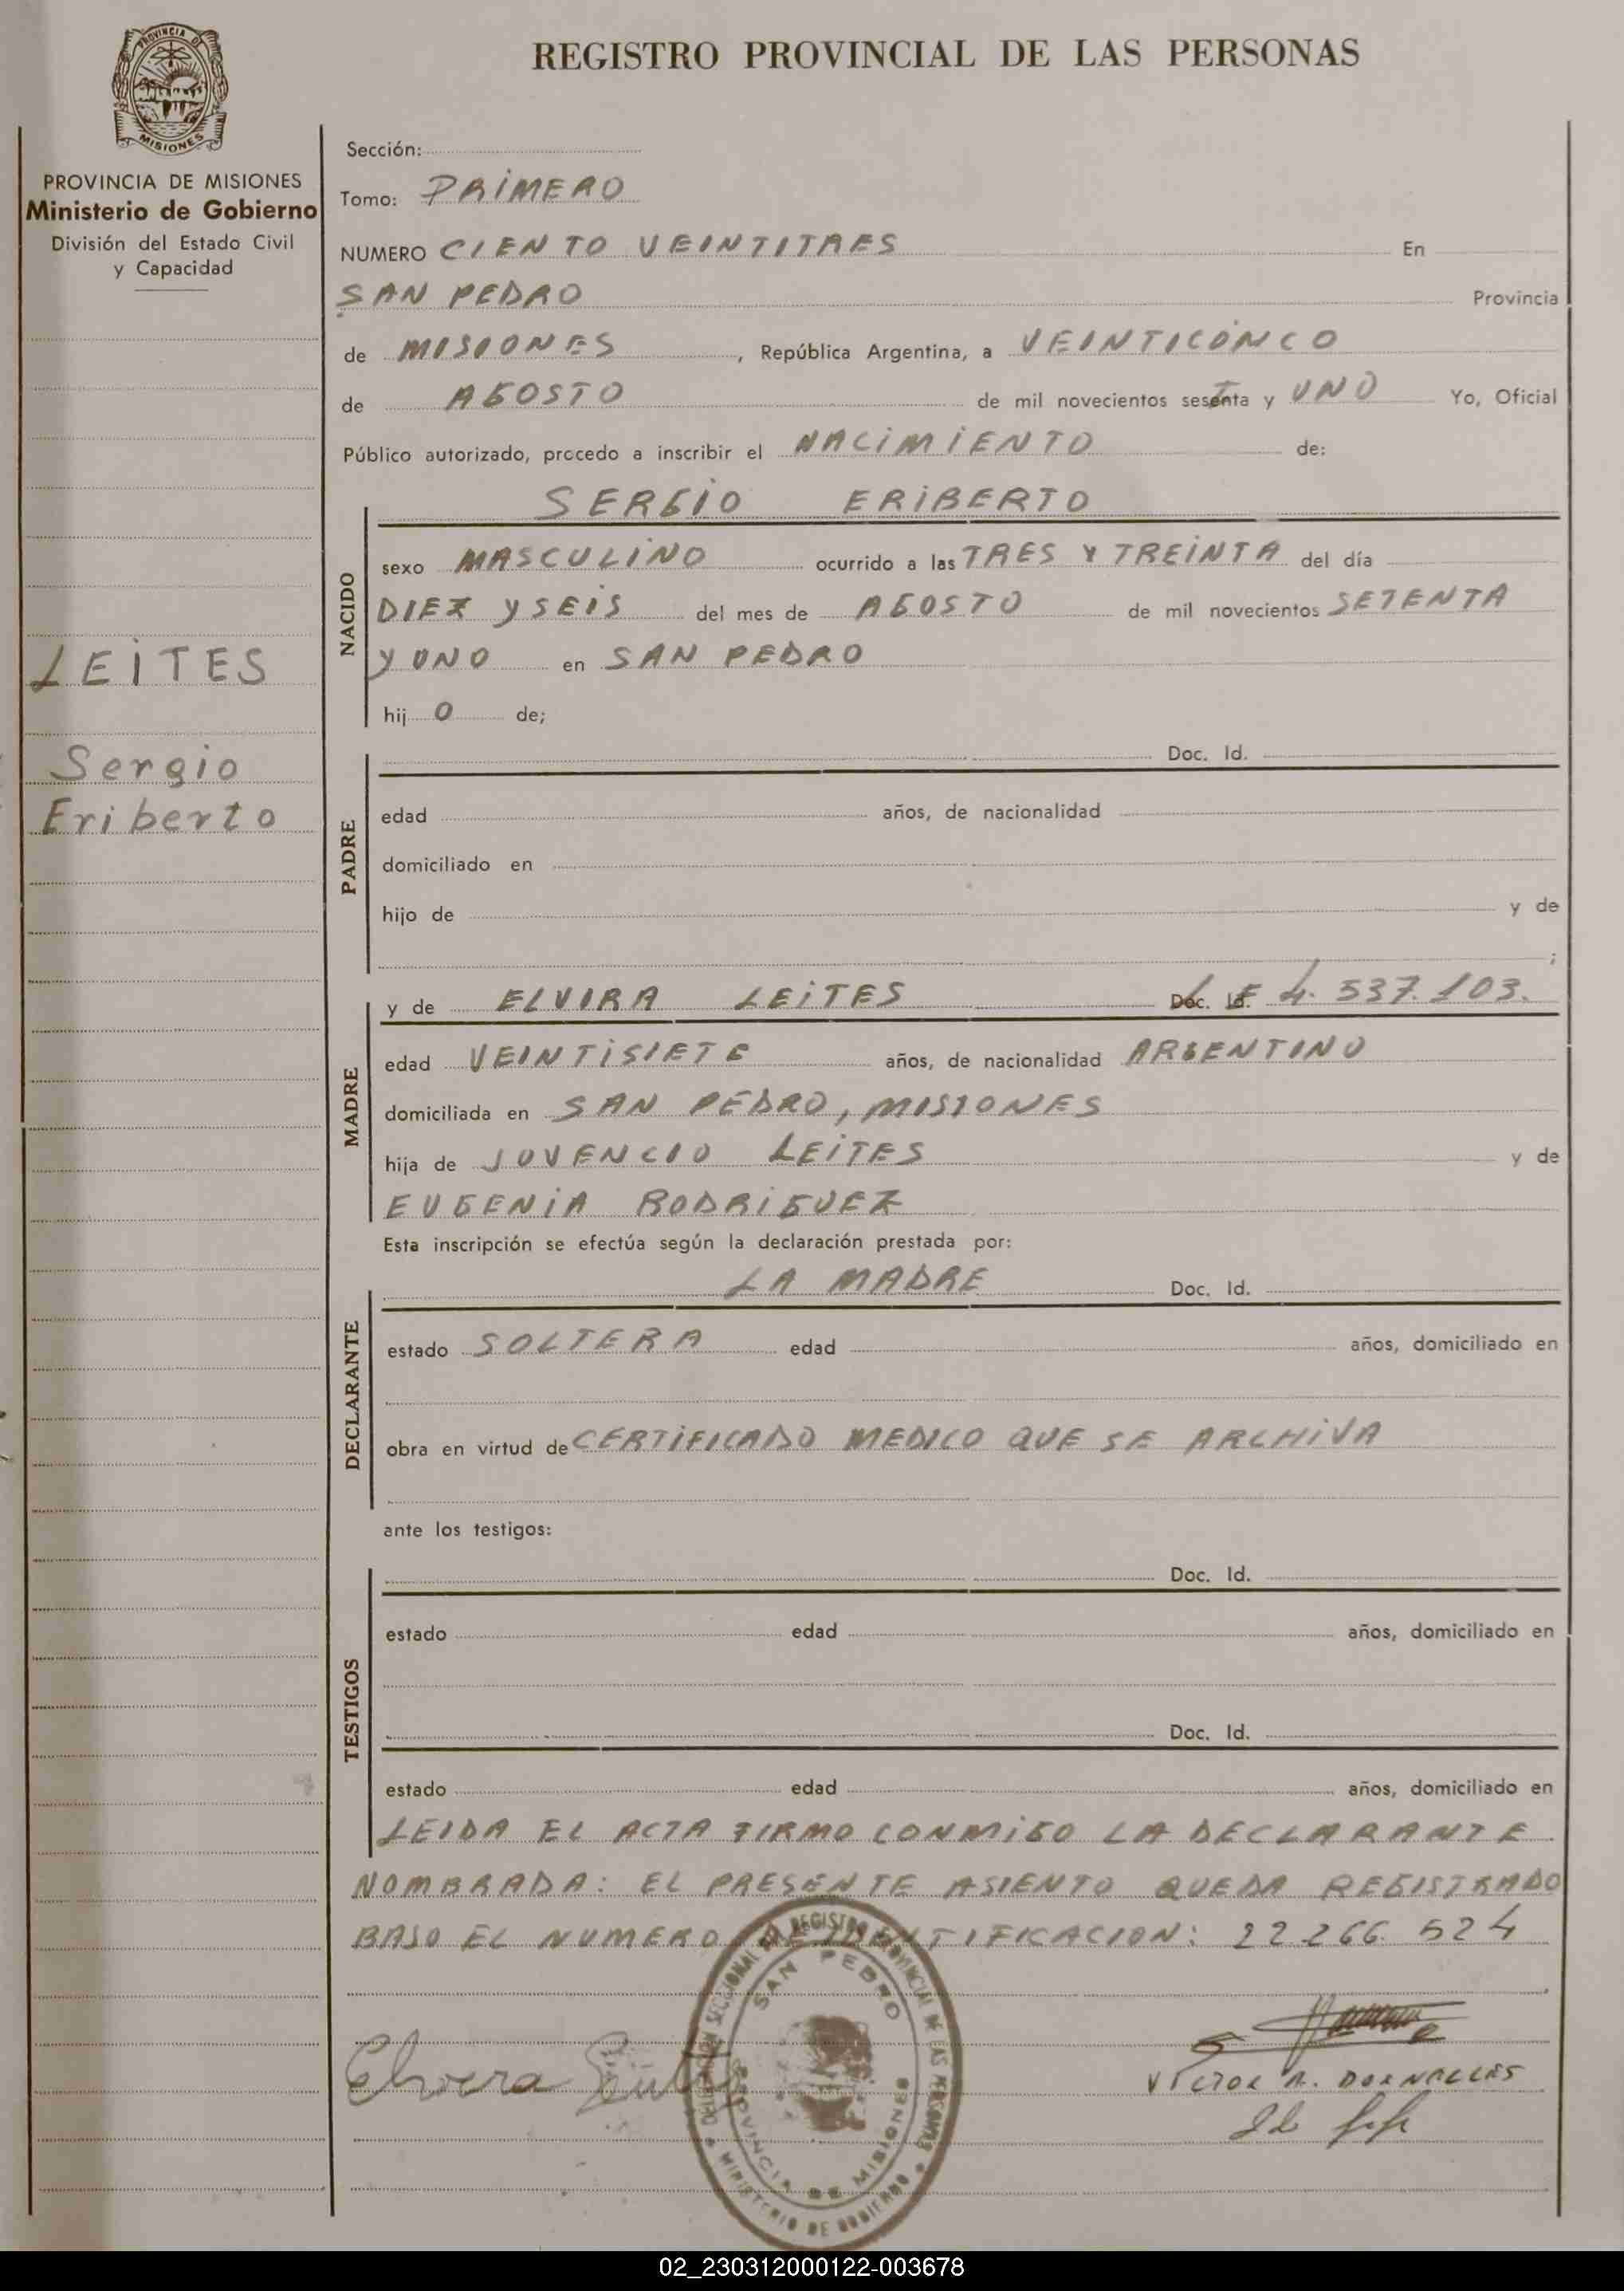 PROVINCIA DE
MISIONES
REGISTRO PROVINCIAL DE LAS PERSONAS
PROVINCIA DE MISIONES
Ministerio de Gobierno
División del Estado Civil
y Capacidad
LEiTES
Sergio
Eriberto
Sección:
Tomo: PRiMERO
NUMERO CIENTO VEINTITRES En
SAN PEDRO Provincia
de MISIONES, República Argentina, a VEINTICINCO
de AGOSTO de mil novecientos setenta y UNO Yo, Oficial
Público autorizado, procedo a inscribir el NACiMiENTO de:
NACIDO
SERGiO ERiBERTO
sexo MASCULiNO ocurrido a las TRES Y TREiNTA del día
DIEZ Y SEiS del mes de AGOSTO de mil novecientos SETENTA
Y UNO en SAN PEDRO
hij O de;
PADRE
Doc. Id.
edad años, de nacionalidad
domiciliado en
hijo de y de
;
MADRE
y de ELVIRA LEiTES Doc. Id. L E 4. 537. 103.
edad VEINTiSIETE años, de nacionalidad ARGENTINO
domiciliada en SAN PEDRO, MISIONES
hija de JOVENCIO LEiTES y de
EUGENiA RODRiGUEZ
Esta inscripción se efectúa según la declaración prestada por:
DECLARANTE
LA MADRE Doc. Id.
estado SOLTERA edad años, domiciliado en
obra en virtud de CERTiFICADO MEDICO QUE SE ARCHiVA
ante los testigos:
TESTIGOS
Doc. Id.
estado edad años, domiciliado en
Doc. Id.
estado edad años, domiciliado en
LEIDA EL ACTA FIRMO CONMiGO LA DECLARANTE
NOMBRADA: EL PRESENTE ASIENTO QUEDA REGISTRADO
BAJO EL NUMERO DE IDENTIFICACION: 22.266.524
DELEGACION SECCIONAL REGISTRO PROVINCIAL DE LAS PERSONAS
SAN PEDRO
PROVINCIA DE MISIONES
MINISTERIO DE GOBIERNO
Elvira Leites
VICTOR A. DORNELLES
02_230312000122-003678